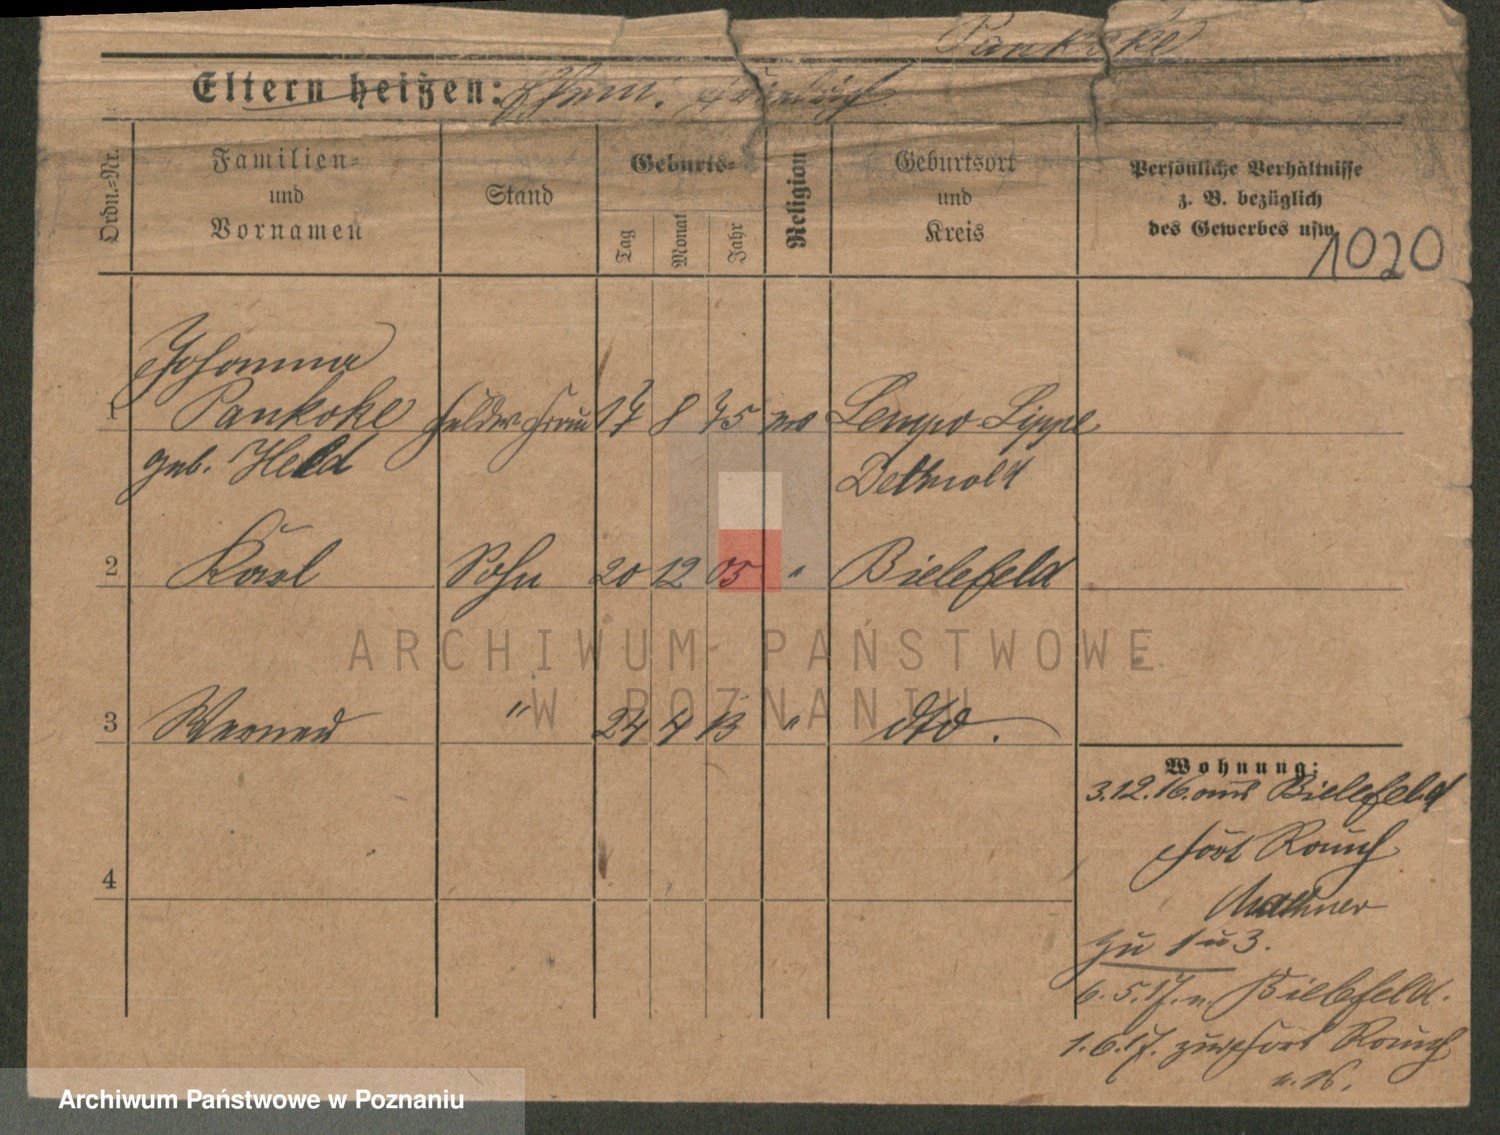 Pankoke
Eltern heißen: Ehem. Friedrich
Ordn.=Nr.
Familien=
und
Vornamen
Stand
Geburts=
Tag
Monat
Jahr
Religion
Geburtsort
und
Kreis
Persönliche Verhältnisse
z. B. bezüglich
des Gewerbes usw.
1020
Johanna
1 Pankoke 17 8 75 Lempo Lippe
geb. Held Detmold
2 Karl Sohn 20 12 05 " Bielefeld
3 Werner " 24 4 13 " dto.
4
Wohnung:
3.12.16. aus Bielefeld
Fort Rauch
zu 1 u 3.
6.5.17. n. Bielefeld.
1.6.17. zur Fort Rauch
ARCHIWUM PAŃSTWOWE
W POZNANIU
Archiwum Państwowe w Poznaniu